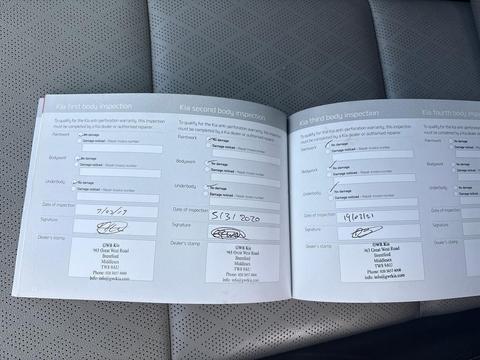 Kia first body inspection
To qualify for the Kia anti-perforation warranty, this inspection
must be completed by a Kia dealer or authorised repairer.
Paintwork
No damage
Damage noticed – Repair invoice number
Bodywork
No damage
Damage noticed – Repair invoice number
Underbody
No damage
Damage noticed – Repair invoice number
Date of inspection
Signature
Dealer's stamp
GWR Kia
Great West Road
Brentford
Middlesex
Kia second body inspection
To qualify for the Kia anti-perforation warranty, this inspection
must be completed by a Kia dealer or authorised repairer.
Paintwork
No damage
Damage noticed – Repair invoice number
Bodywork
No damage
Damage noticed – Repair invoice number
Underbody
No damage
Damage noticed – Repair invoice number
Date of inspection
5/3/2020
Signature
Dealer's stamp
GWR Kia
Great West Road
Brentford
Middlesex
Kia third body inspection
To qualify for the Kia anti-perforation warranty, this inspection
must be completed by a Kia dealer or authorised repairer.
Paintwork
No damage
Damage noticed – Repair invoice number
Bodywork
No damage
Damage noticed – Repair invoice number
Underbody
No damage
Damage noticed – Repair invoice number
Date of inspection
Signature
Dealer's stamp
GWR Kia
Great West Road
Brentford
Middlesex
Kia fourth body
To qualify for the Kia anti-perf
must be completed by a Kia
Paintwork
No damage
Damage noticed
Bodywork
No damage
Damage noticed
Underbody
No damage
Damage noticed
Date of inspection
Signature
Dealer's stamp